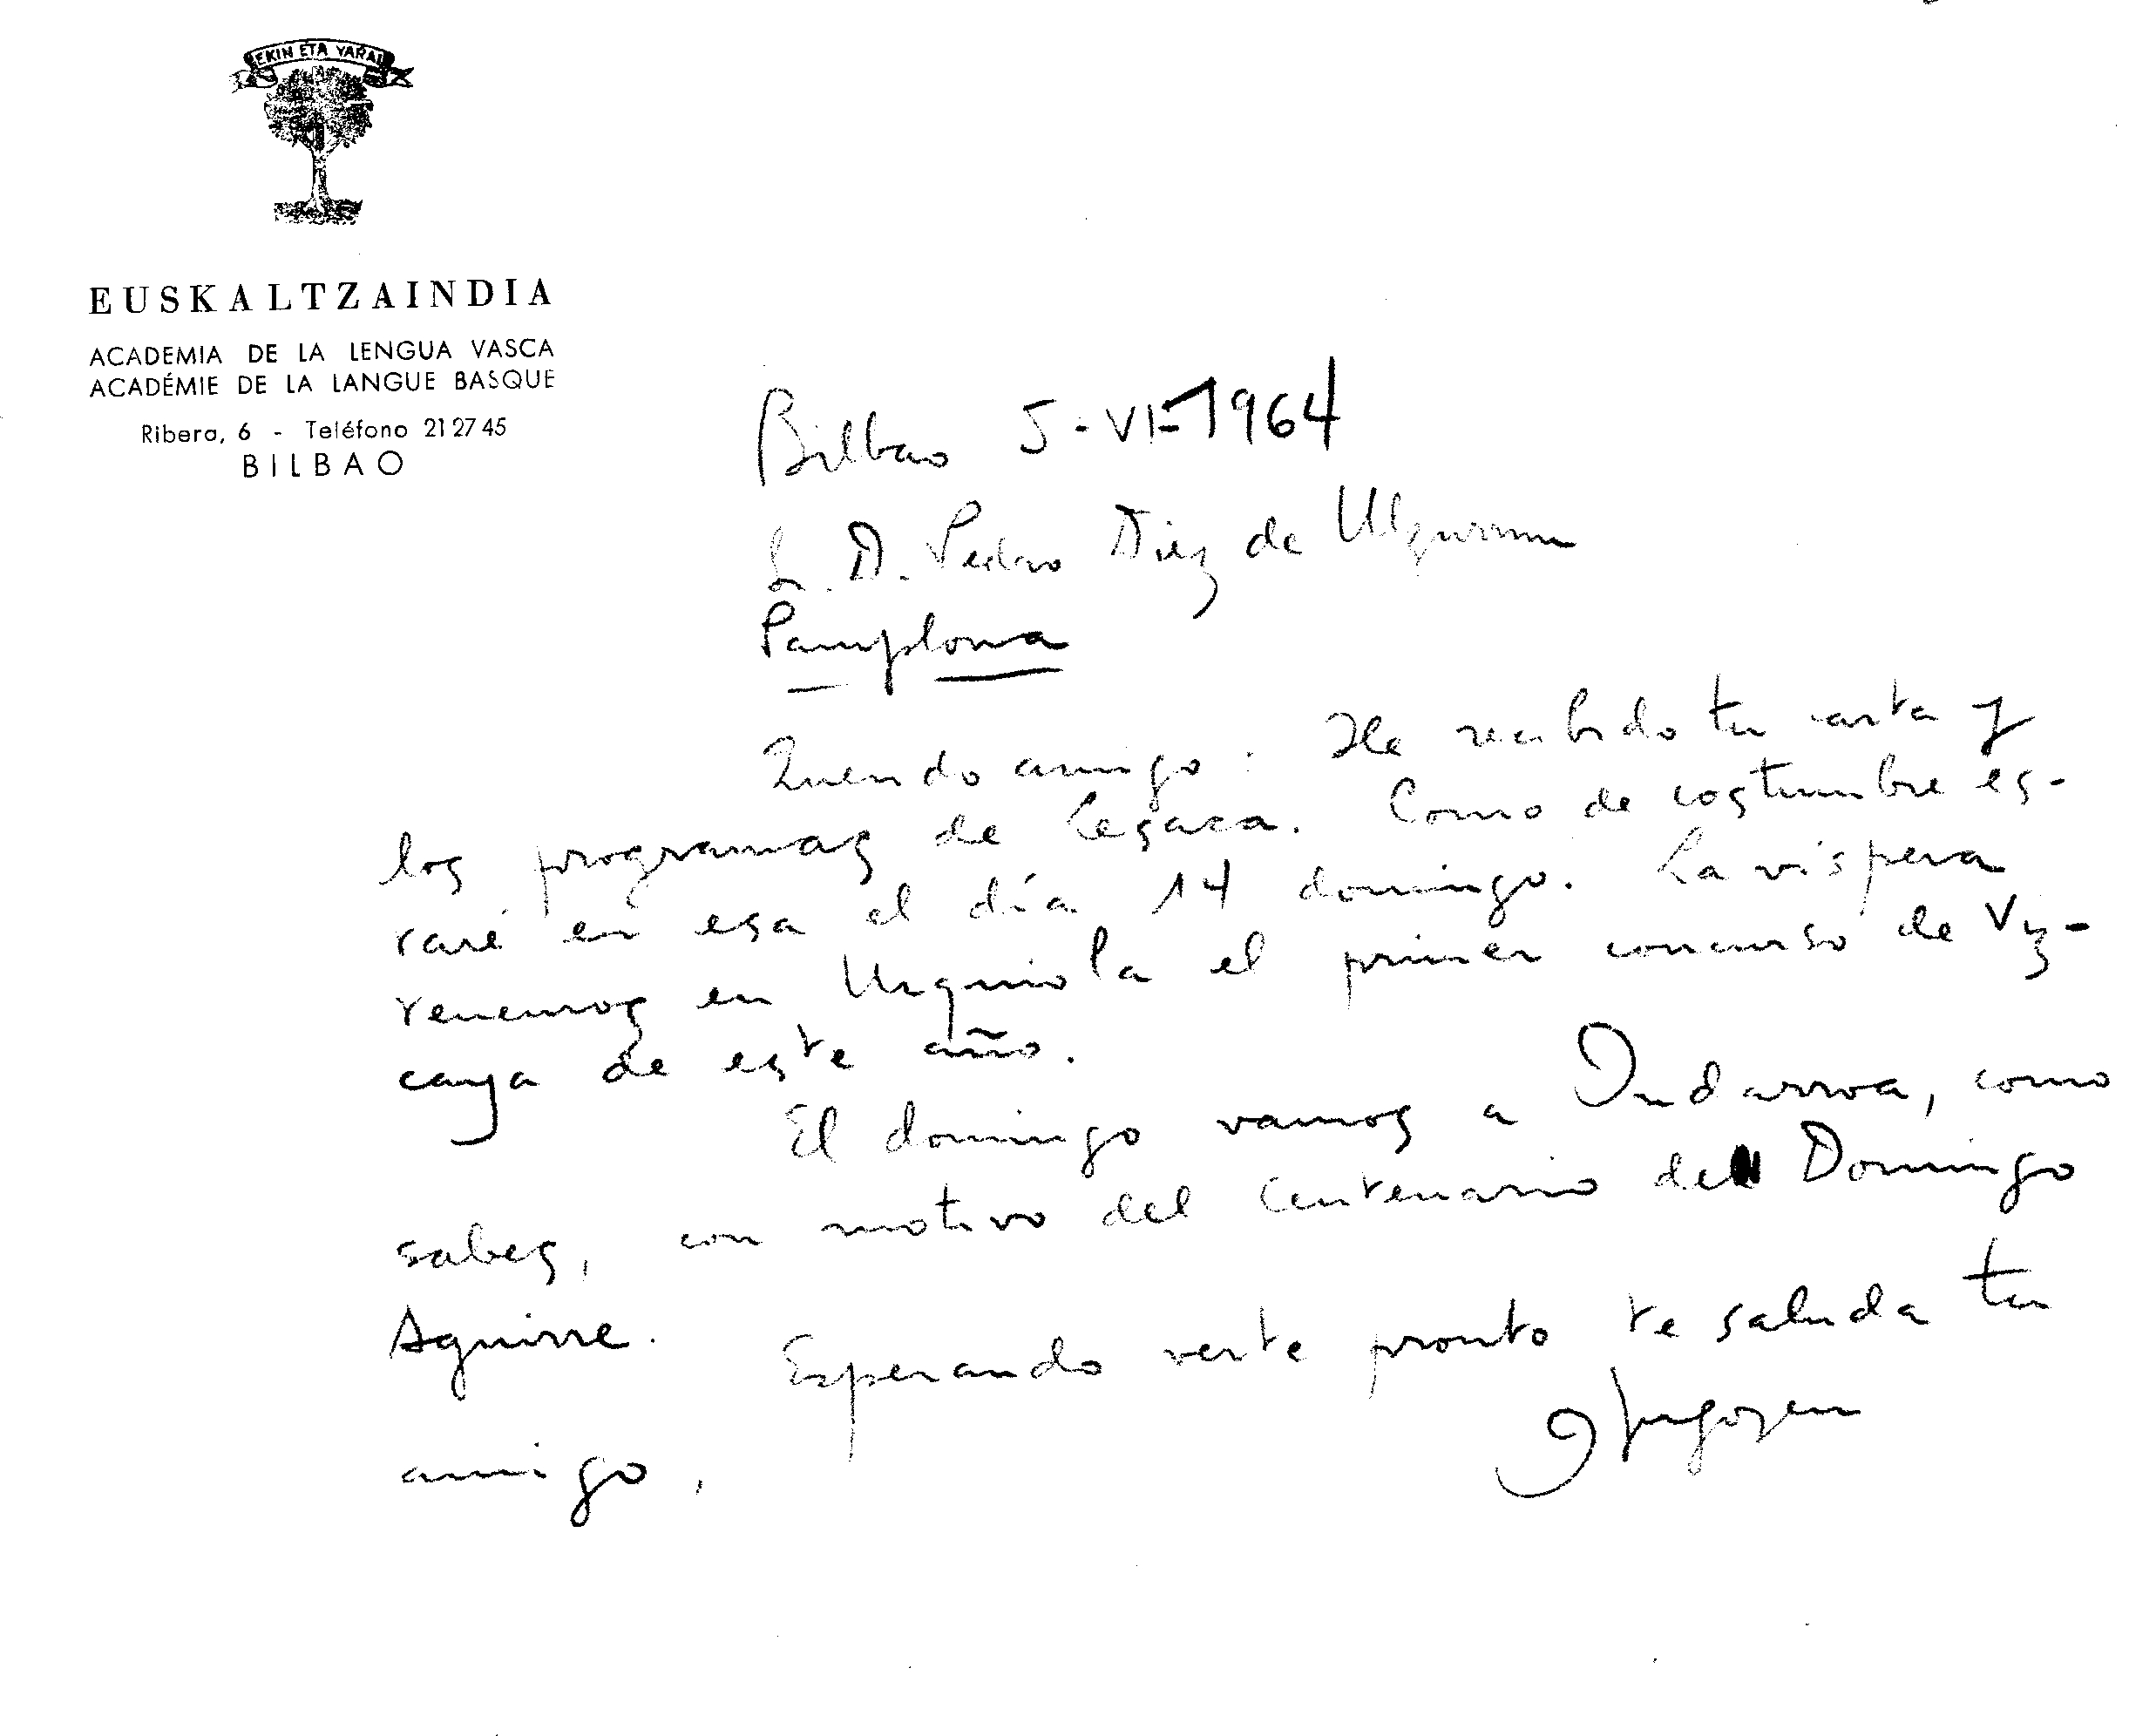 EKIN ETA YARAI
EUSKALTZAINDIA
ACADEMIA DE LA LENGUA VASCA
ACADÉMIE DE LA LANGUE BASQUE
Ribera, 6 - Teléfono 21 27 45
BILBAO
Bilbao 5-VI-1964
S. D. Pedro Diez de Ulzurrun
Pamplona
Querido amigo: He recibido tu carta y
los programas de Lesaca. Como de costumbre es-
taré en esa el día 14 domingo. La víspera
tenemos en Urquiola el primer concurso de Viz-
caya de este año.
El domingo vamos a Ondarroa, como
sabes, con motivo del Centenario de Domingo
Aguirre.
Esperando verte pronto te saluda tu
amigo,